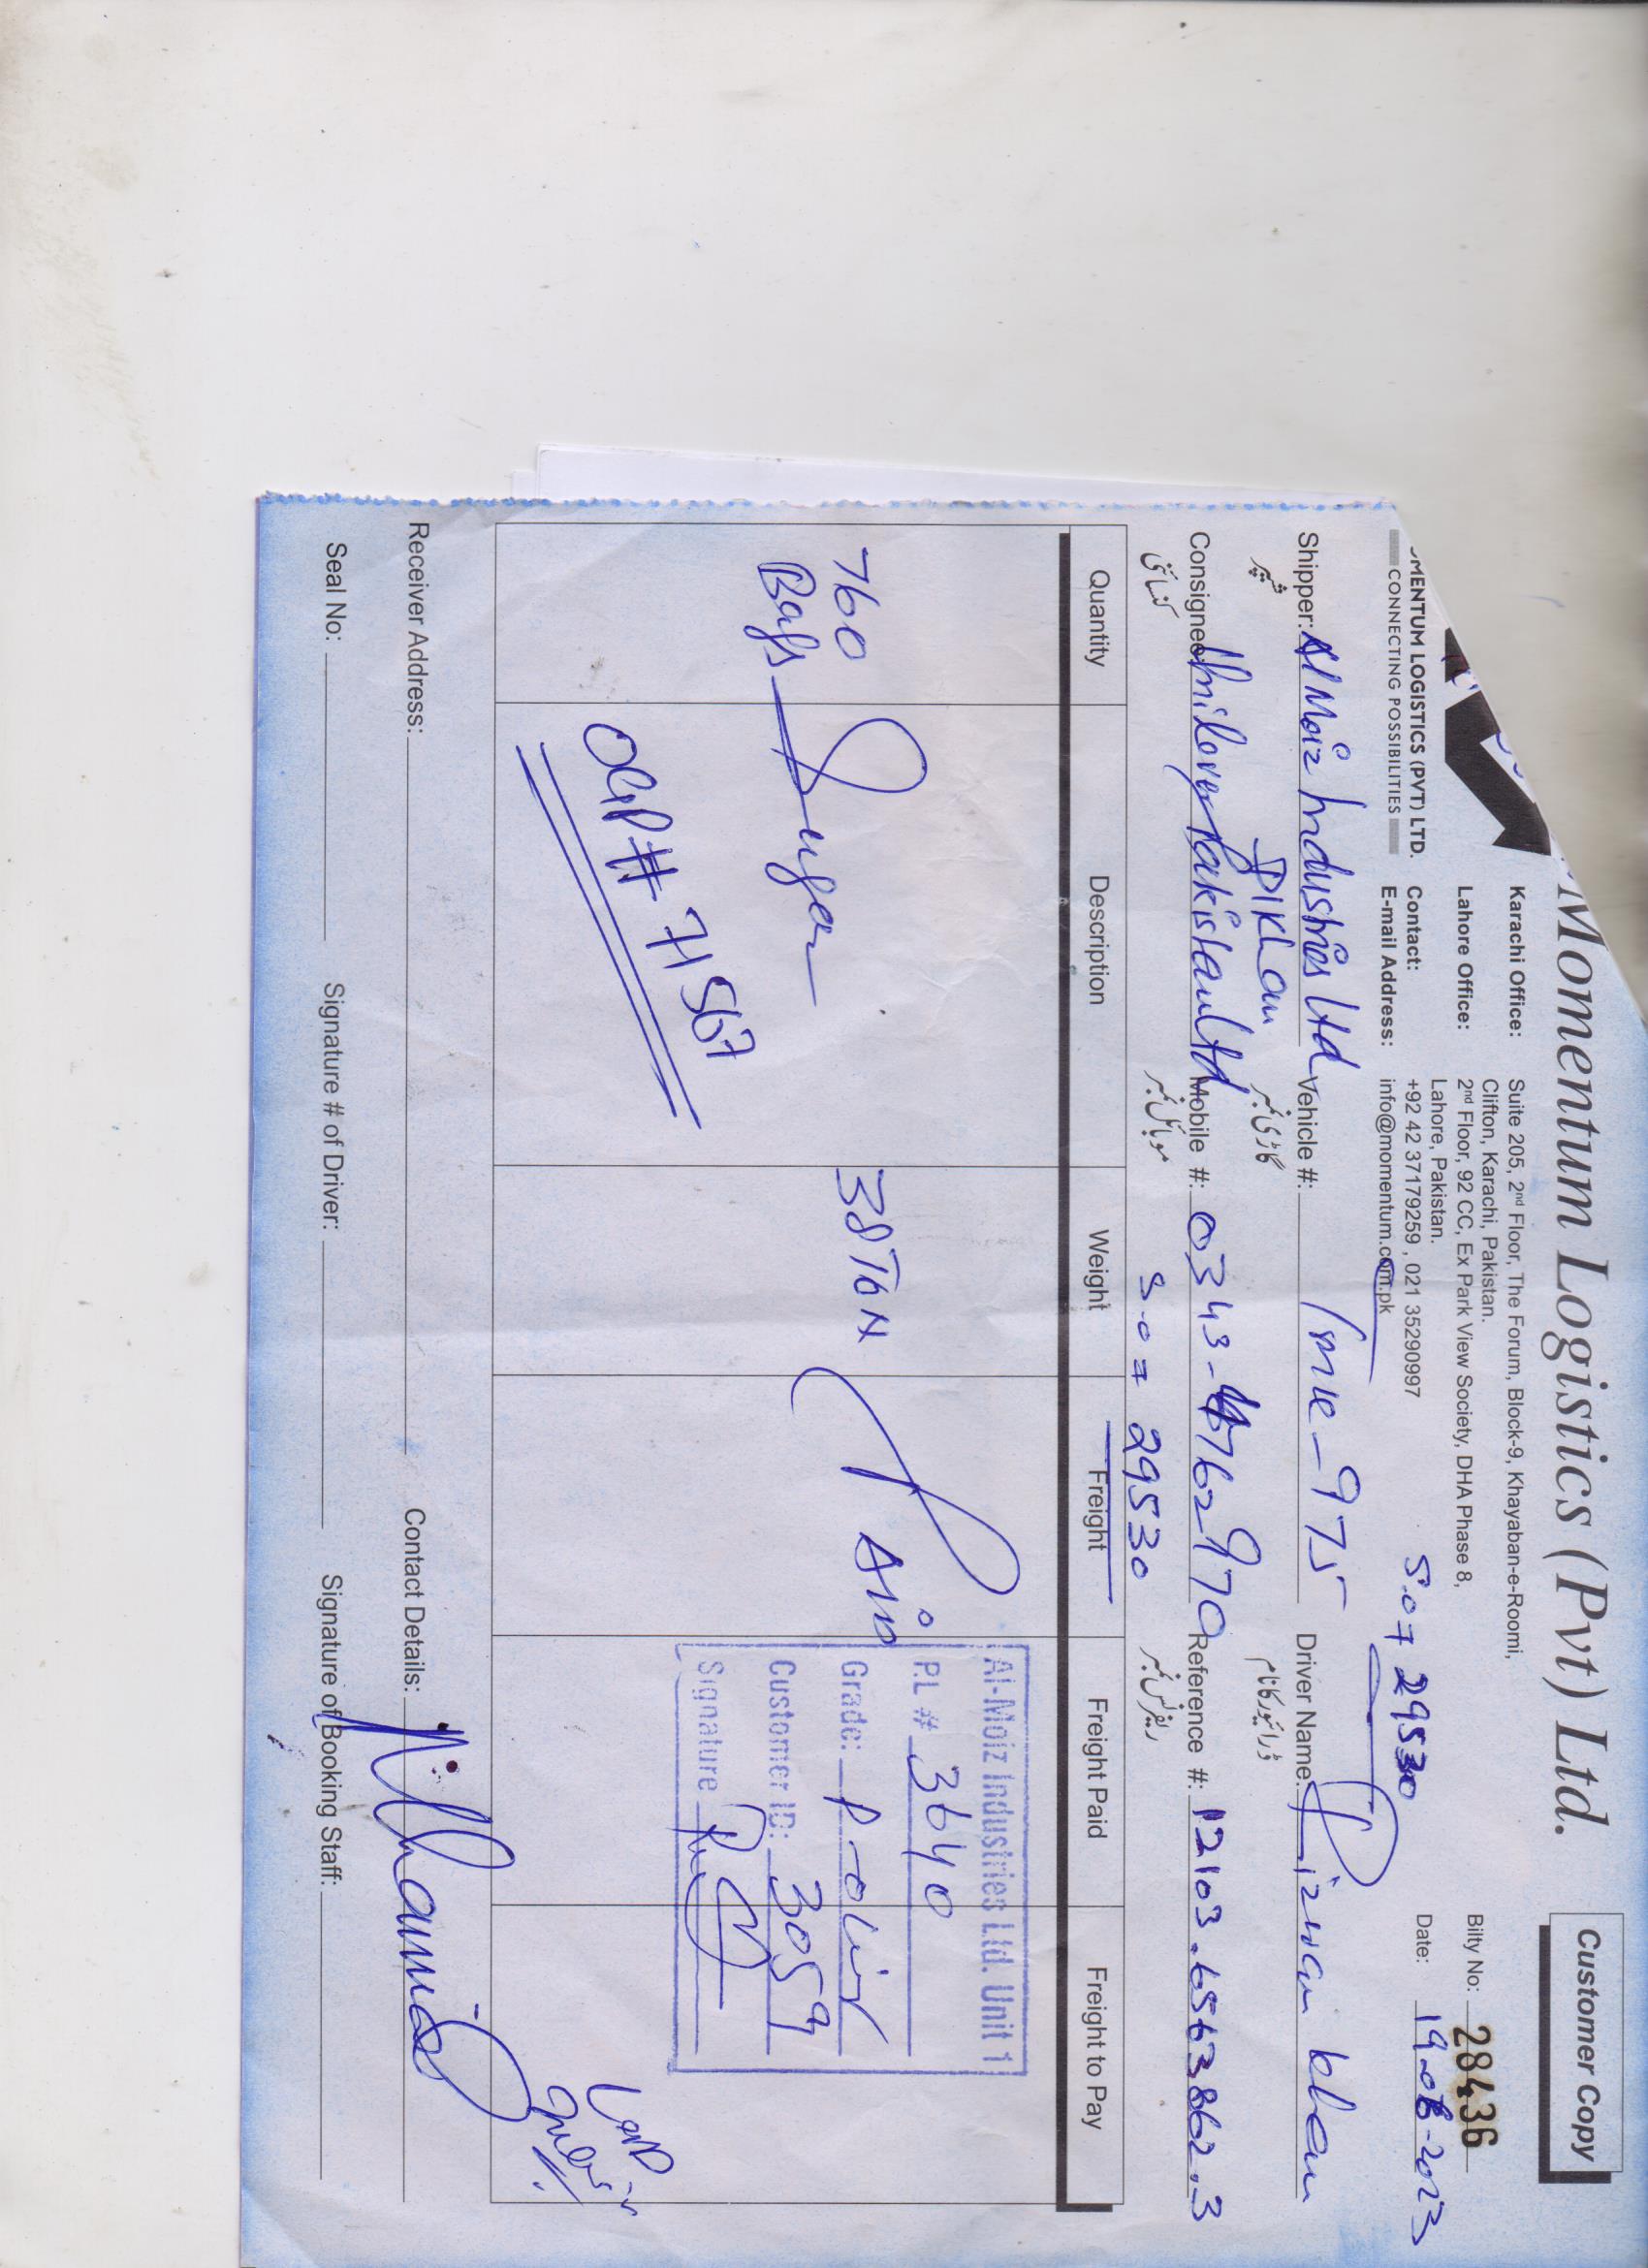 Momentum Logistics (Pvt) Ltd.
Customer Copy
MENTUM LOGISTICS (PVT) LTD.
CONNECTING POSSIBILITIES
Karachi Office: Suite 205, 2nd Floor, The Forum, Block-9, Khayaban-e-Roomi,
Clifton, Karachi, Pakistan.
Lahore Office: 2nd Floor, 92 CC, Ex Park View Society, DHA Phase 8,
Lahore, Pakistan.
Contact: +92 42 37179259 , 021 35290997
E-mail Address: info@momentum.com.pk
Bilty No: 28436
Date: 19-08-2023
S.o # 29530
Shipper: Al Moiz Industries Ltd Vehicle #: 975 Driver Name: Rizwan khan
شپر DIKhan گاڑی نمبر ڈرائیور کا نام
Consignee: Unilever Pakistan Ltd Mobile #: 0343-9762970 Reference #: 12103.6563862.3
کنسائنی موبائل نمبر ریفرنس نمبر
S.o # 29530
Quantity Description Weight Freight Freight Paid Freight to Pay
760 Bags Sugar 38 Ton
OGP # 71567
Al-Moiz Industries Ltd. Unit 1
P.L # 3640
Grade:
Customer ID: 3059
Signature
Receiver Address: Contact Details:
Seal No: Signature # of Driver: Signature of Booking Staff: